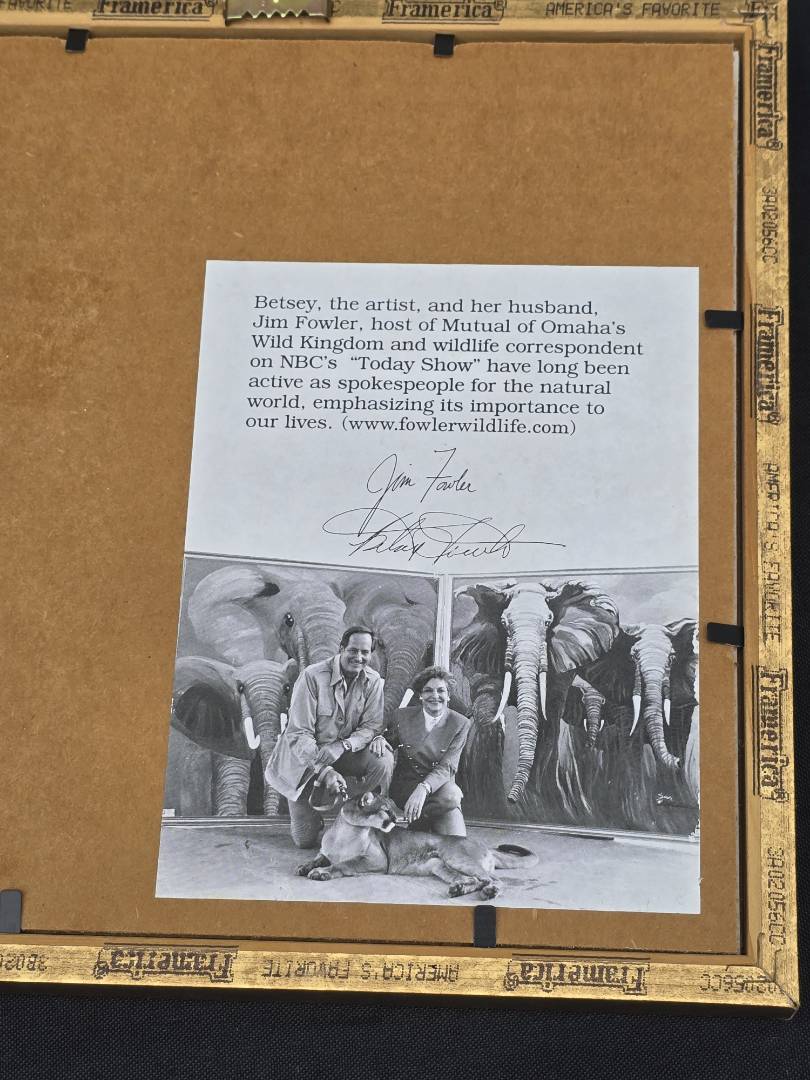 AVOURITE Framerica® C Framerica® AMERICA'S FAVORITE
Framerica®
3A02056CC
Framerica®
AMERICA'S FAVORITE
Framerica®
3A02056CC
Betsey, the artist, and her husband,
Jim Fowler, host of Mutual of Omaha's
Wild Kingdom and wildlife correspondent
on NBC's "Today Show" have long been
active as spokespeople for the natural
world, emphasizing its importance to
our lives. (www.fowlerwildlife.com)
Jim Fowler
Betsey Fowler
Framerica® AMERICA'S FAVORITE Framerica®